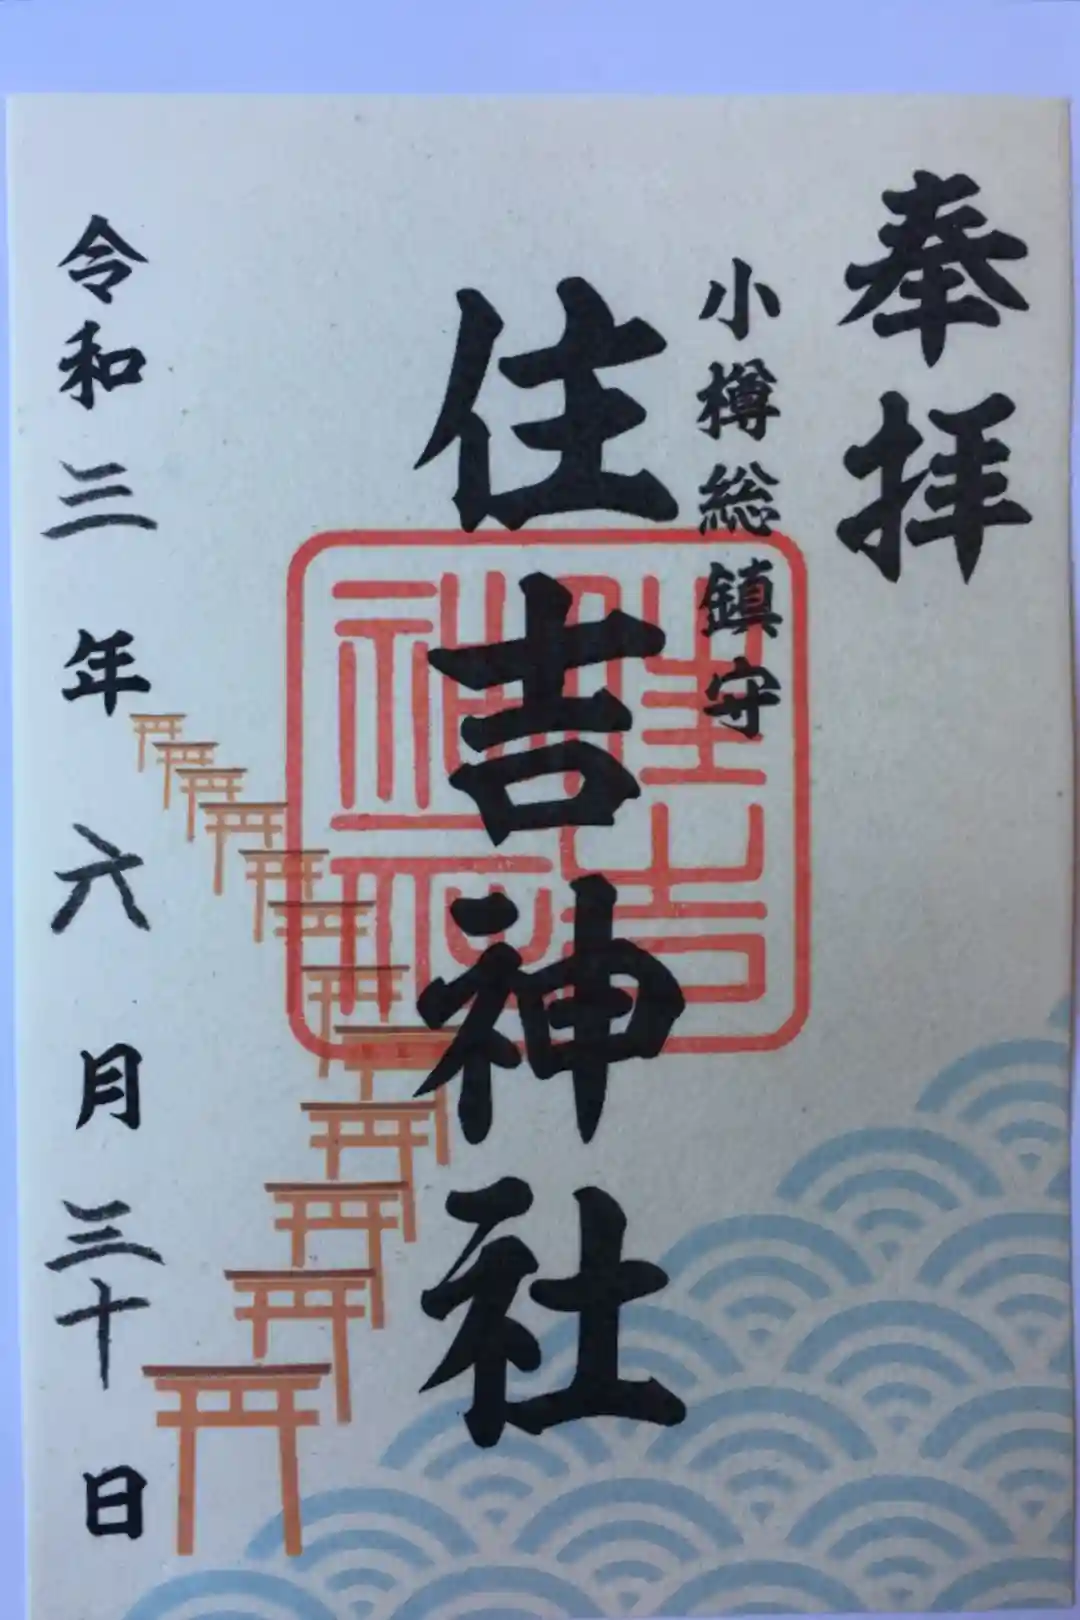 奉拝
小樽総鎮守
住吉神社
住吉神社印
令和三年六月三十日